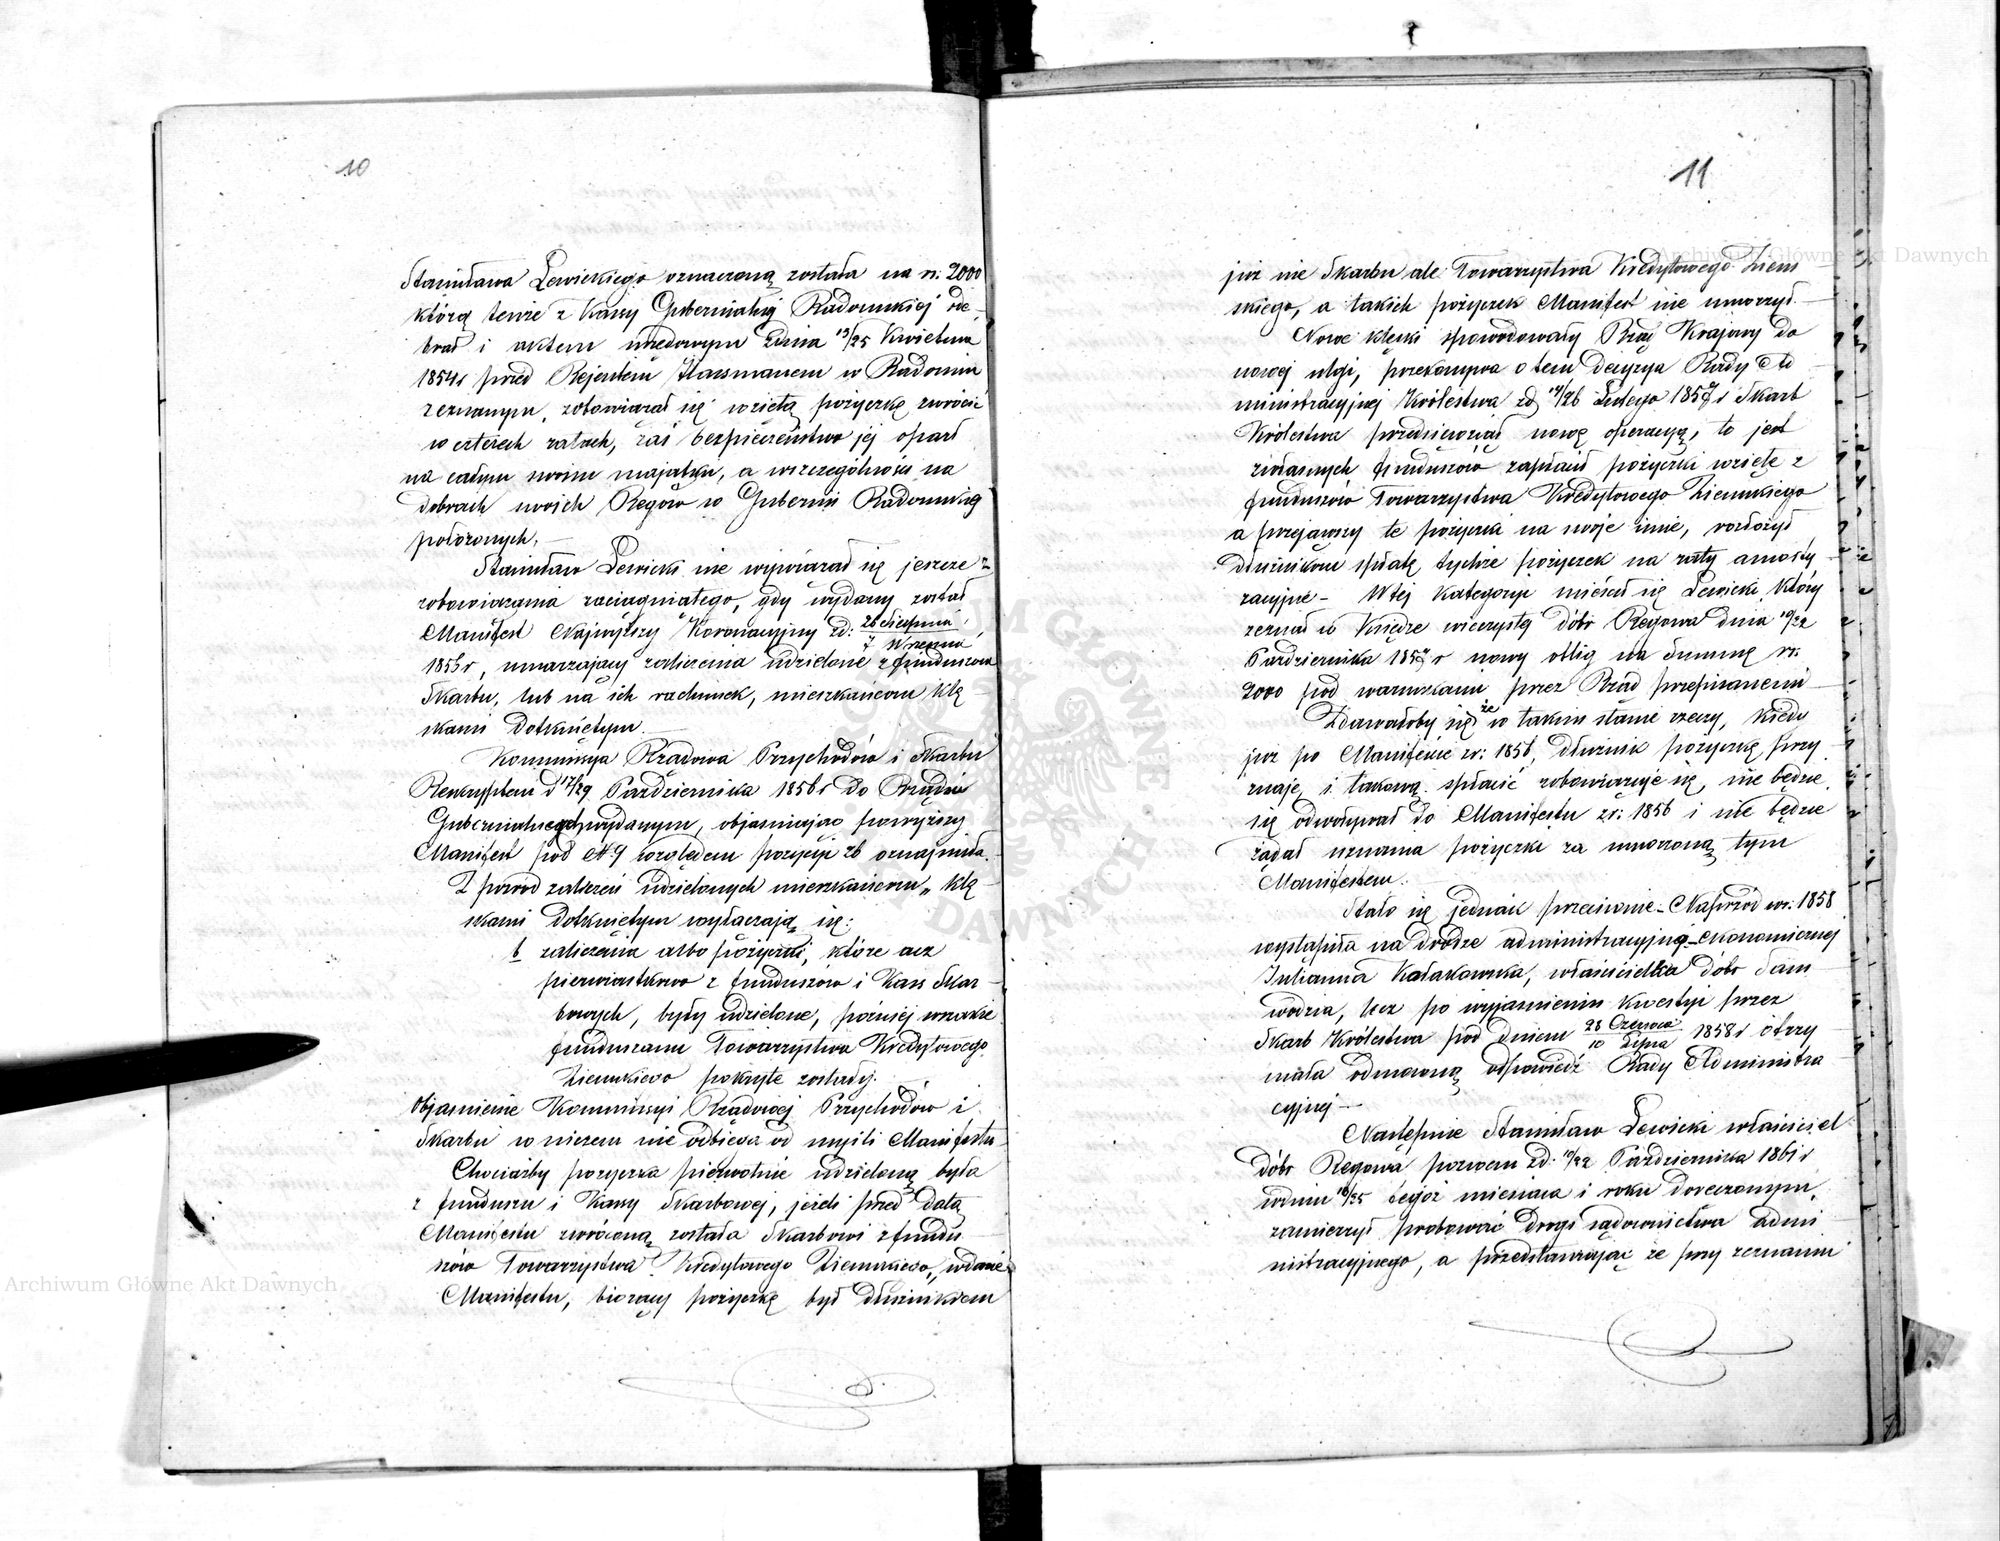 10
Stanisława Lewickiego oznaczoną została na rs. 2000
którą tenże z Kassy Gubernialnéj Radomskiéj ode-
brał i aktem urzędowym z dnia 13/25 Kwietnia
1854 r przed Rejentem Hassmanem w Radomiu
zeznanym, zobowiązał się wziętą pożyczkę zwrócić
w czterech ratach, zaś bezpieczeństwo jéj oparł
na całym swoim majątku, a w szczególności na
dobrach swoich Regów w Gubernii Radomskiéj
położonych. —
Stanisław Lewicki nie wywiązał się jeszcze z
zobowiązania zaciągniętego, gdy wydany został
Manifest Najwyższy Koronacyjny z d: 26 Sierpnia / 7 Września
1856 r, umarzający zaliczenia udzielone z funduszów
Skarbu, lub na ich rachunek, mieszkańcom klę-
skami dotkniętym.
Kommissya Rządowa Przychodów i Skarbu
Reskryptem d 17/29 Października 1856 r do Rządów
Gubernialnych wydanym, objaśniając powyższy
Manifest pod № 9 względem pozycyi 26 oznajmiła.
Z powód zaliczeń udzielonych mieszkańcom „klę-
skami dotkniętym wyłączają się:
b zaliczenia albo pożyczki, które acz
pierwiastkowo z funduszów i Kass Skar-
bowych, były udzielone, później wszakże
funduszami Towarzystwa Kredytowego
Ziemskiego pokryte zostały.
Objaśnienie Kommissyi Rządowéj Przychodów i
Skarbu w niczem nie odbiega od myśli Manifestu
Chociażby pożyczka pierwotnie udzieloną była
z funduszu i Kassy Skarbowéj, jeżeli przed datą
Manifestu zwróconą została Skarbowi z fundu-
szów Towarzystwa Kredytowego Ziemskiego, w dacie
Manifestu, biorący pożyczkę był dłużnikiem
11
już nie Skarbu ale Towarzystwa Kredytowego Ziem-
skiego, a takich pożyczek Manifest nie umorzył. —
Nowe klęski spowodowały Rząd Krajowy do
nowéj ulgi, przekonywa o tem decyzya Rady Ad-
ministracyjnéj Królestwa z d 14/26 Lutego 1857 r Skarb
Królestwa przedsięwziął nową operacyą, to jest
z własnych funduszów zapłacił pożyczki wzięte z
funduszów Towarzystwa Kredytowego Ziemskiego
a przejąwszy te pożyczki na swoje imie, rozłożył
dłużnikom spłatę tychże pożyczek na raty amorty-
zacyjne – W téj kategoryi mieścił się Lewicki, który
zeznał w Księdze wieczystéj dóbr Regowa dnia 10/22
Października 1857 r nowy oblig na Summę rs:
2000 pod warunkami przez Rząd przepisanemi
Zdawałoby się że w takim stanie rzeczy, kiedy
już po Manifeście z r: 1856, dłużnik pożyczkę przy-
znaje, i takową spłacić zobowiązuje się, nie będzie
się odwoływał do Manifestu z r: 1856 i nie będzie
żądał uznania pożyczki za umorzoną tym
Manifestem.
Stało się jednak przeciwnie – Naprzód w r: 1858
wystąpiła na drodze administracyjno-ekonomicznéj
Julianna Kałakowska, właścicielka dóbr Sam-
wodzia, lecz po wyjaśnieniu kwestyi przez
Skarb Królestwa pod dniem 28 Czerwca / 10 Lipca 1858 r otrzy-
mała odmowną odpowiedź Rady Administra-
cyjnéj —
Następnie Stanisław Lewicki właściciel
dóbr Regowa pozwem z d: 10/22 Października 1861 r
w dniu 13/25 tegoż miesiąca i roku doręczonym,
zamierzył probować drogi sądownictwa admi-
nistracyjnego, a przedstawiając że przy zeznaniu
Archiwum Główne Akt Dawnych
Archiwum Główne Akt Dawnych